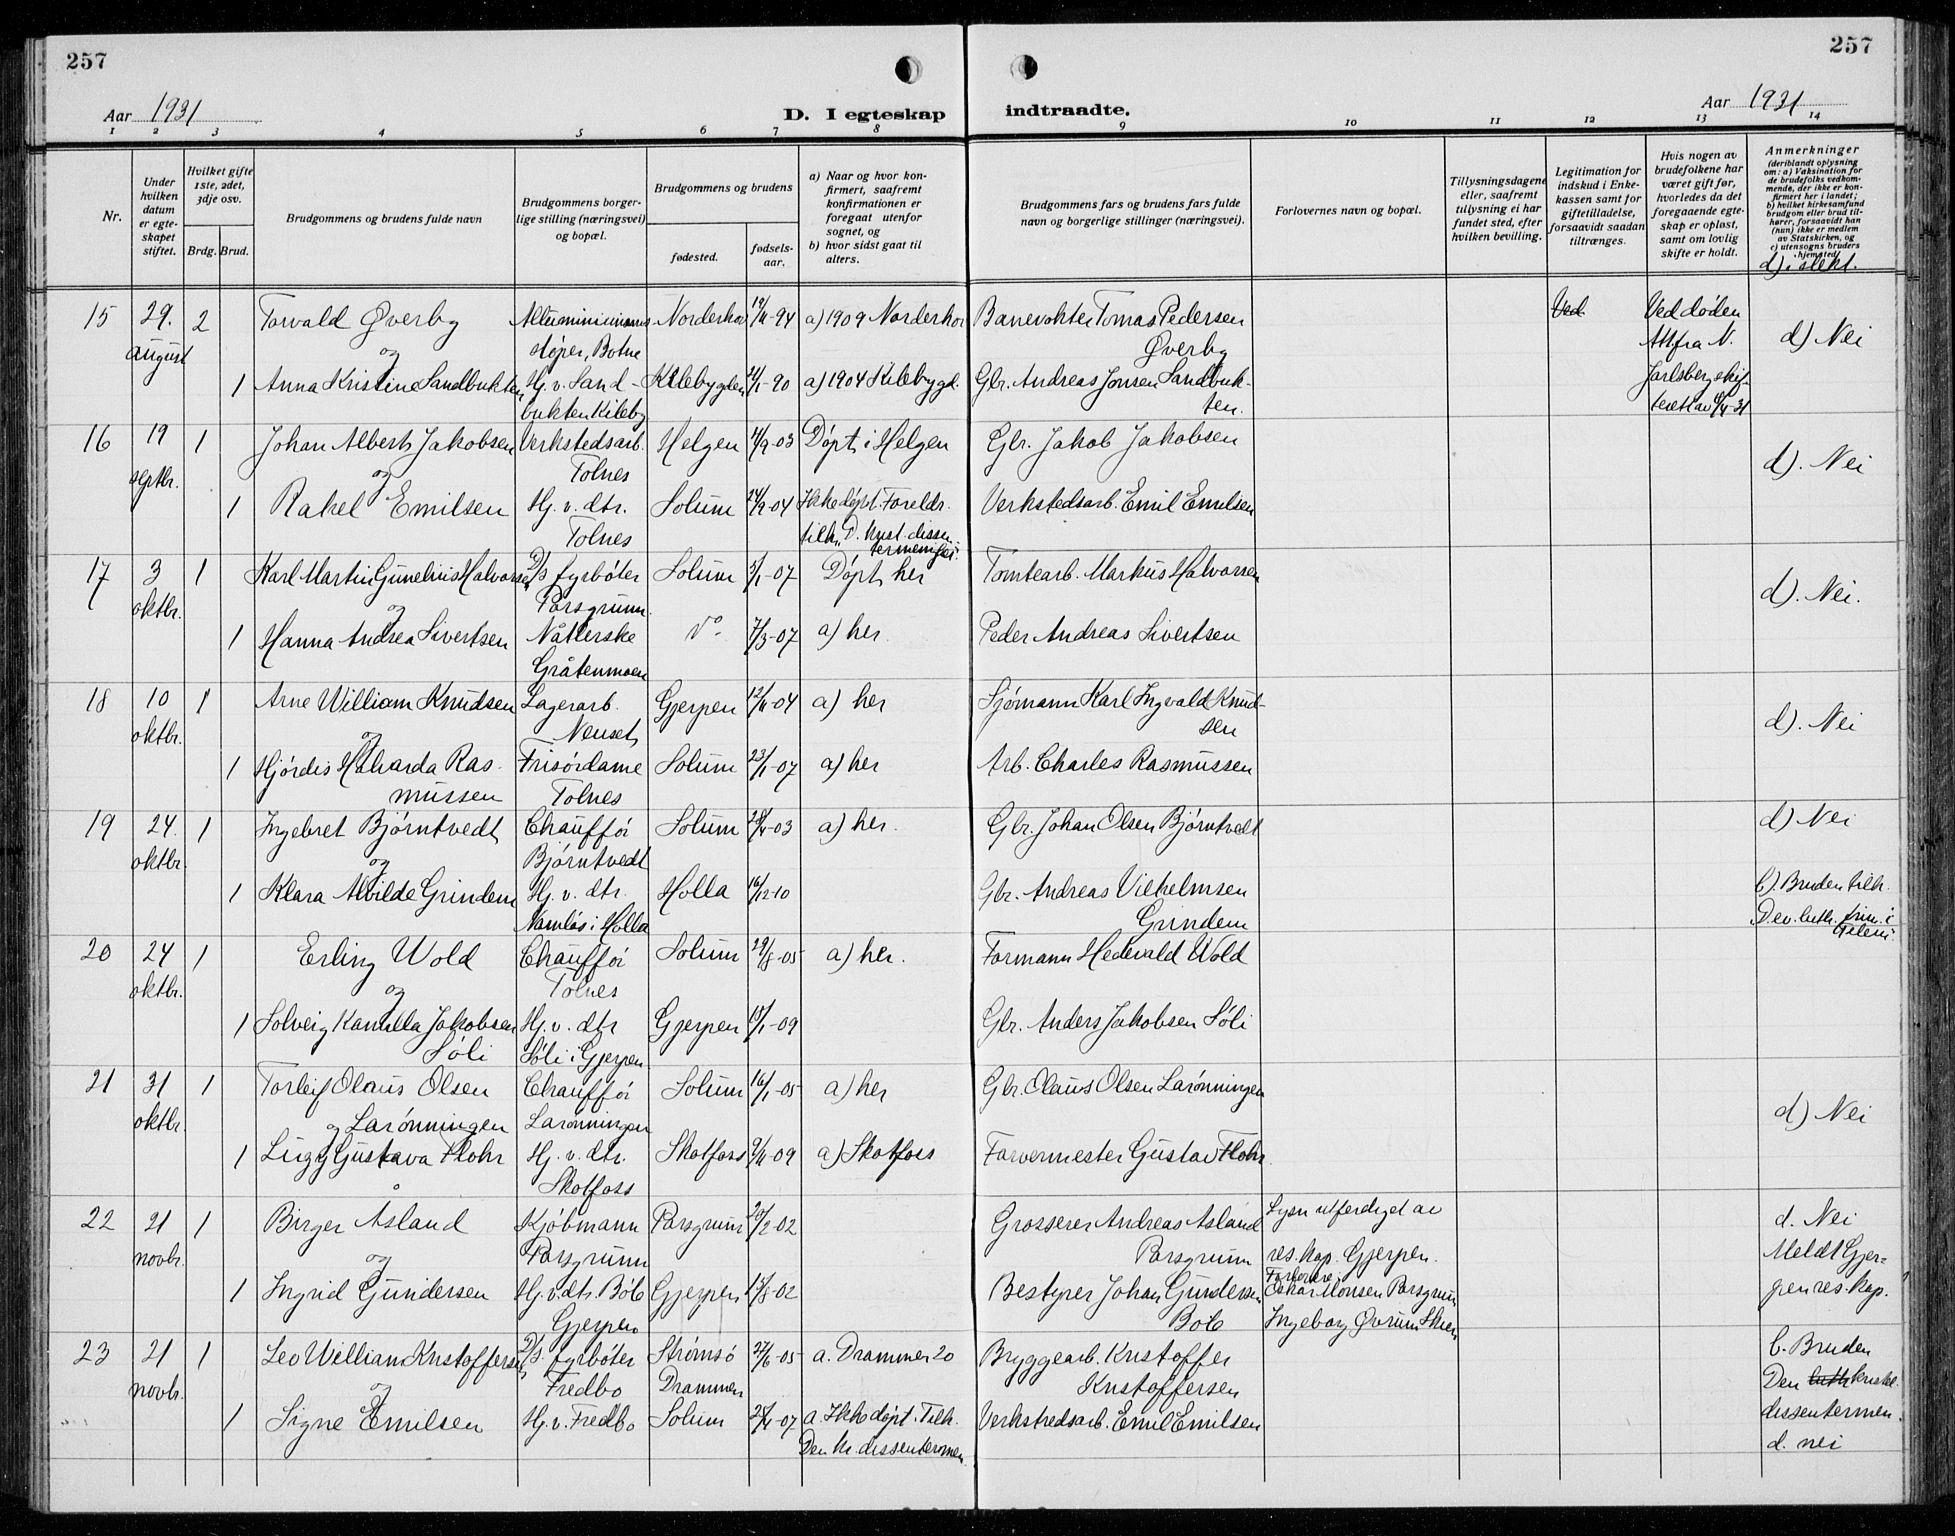 257
257
Aar 1931
D. I egteskap
indtraadte.
Aar 1931
1 2 3 4 5 6 7 8 9 10 11 12 13 14
Nr.
Under hvilken datum er egteskapet stiftet.
Hvilket gifte 1ste, 2det, 3dje osv.
Brdg. Brud.
Brudgommens og brudens fulde navn
Brudgommens borgerlige stilling (næringsvei) og bopæl.
Brudgommens og brudens
fødested.
fødselsaar.
a) Naar og hvor konfirmert, saafremt konfirmationen er foregaat utenfor sognet, og
b) hvor sidst gaat til alters.
Brudgommens fars og brudens fars fulde navn og borgerlige stillinger (næringsvei).
Forlovernes navn og bopæl.
Tillysningsdagene eller, saafremt tillysning ei har fundet sted, efter hvilken bevilling.
Legitimation for indskud i Enkekassen samt for giftetilladelse, forsaavidt saadan tiltrænges.
Hvis nogen av brudefolkene har været gift før, hvorledes da det foregaaende egteskap er opløst, samt om lovlig skifte er holdt.
Anmerkninger
(deriblandt oplysning om: a) Vaksination for de brudefolks vedkommende, der ikke er konfirmert her i landet; b) hvilket kirkesamfund brudgom eller brud tilhører, forsaavidt han (hun) ikke er medlem av Statskirken, og c) utensogns bruders hjemsted.
d) i slekt.
15 29. august 2 Torvald Øverby Aluminiumsstøper, Botne Norderhov 19/11-94 a) 1909 Norderhov Banevokter Tomas Pedersen Øverby Ved Ved døden Att fra N. Jarlsberg skifterett av d) Nei
og
1 Anna Kristine Sandbukten Hj. v. Sandbukten Kileby Kilebygden a) 1904 Kilebygd. Gbr. Andreas Jonsen Sandbukten.
16 19 septbr. 1 Johan Albert Jakobsen Verkstedsarb. Tolnes Helgen 11/9-03 Døpt i Helgen Gbr. Jakob Jakobsen d). Nei
og
1 Rakel Emilsen Hj. v. dtr. Tolnes Solum 24/9-04 Ikke døpt. Foreldr. tilh. D. krist. dissentermenighet. Verkstedsarb. Emil Emilsen
17 3 oktbr. 1 Karl Martin Gunelius Halvorsen D/s fyrbøter Porsgrunn. Solum 5/1-07 Døpt her Tomtearb. Markus Halvorsen d). Nei.
og
1 Hanna Andrea Sivertsen Nåtlerske Gråtenmoen do- 7/3-07 a) her. Peder Andreas Sivertsen
18 10 oktbr. 1 Arne William Knudsen Lagerarb. Nenset Gjerpen 12/11-04 a) her Sjømann Karl Ingvald Knudsen d). Nei
og
1 Hjørdis Halvarda Rasmussen Frisørdame Tolnes Solum 23/1-07 a) her Arb. Charles Rasmussen
19 24. oktbr. 1 Ingebret Bjørntvedt Chauffør Bjørntvedt Solum a) her. Gbr. Johan Olsen Bjørntvedt d) Nei
og
1 Klara Alvilde Grindem Hj. v. dtr. Namløs i Holla Holla 16/12-10 Gbr. Andreas Vilhelmsen Grindem b). Bruden tilh. D. ev. luth. frim. i
20 24 oktbr. 1 Erling Wold Chauffør Tolnes Solum 29/8-05 a) her. Formann Hedevald Wold
og
1 Solveig Kamilla Jakobsen Søli Hj. v. dtr Søli i Gjerpen Gjerpen 15/1-09 Gbr. Anders Jakobsen Søli
21 31 oktbr. 1 Torleif Olaus Olsen Larønningen Chauffør Larønningen Solum 16/1-05 a) her Gbr. Olaus Olsen Larønningen d) Nei
og
1 Lizzy Gustava Flohr Hj. v. dtr. Skotfoss Skotfoss 9/11-09 a) Skotfoss Farvermester Gustav Flohr
22 21 novbr. 1 Birger Åsland Kjøbmann Porsgrunn Porsgrunn 20/2-02 Grosserer Andreas Åsland Porsgrunn Lysn utferdiget av res. kap. Gjerpen. d. Nei Meldt Gjerpen res. kap.
og
1 Ingrid Gundersen Hj. v. dtr. Böle Gjerpen Gjerpen 15/8-02 Bestyrer Johan Gundersen Böle Forlovere: Oskar Monsen Porsgrunn Ingeborg Øvrum Skien
23 21 novbr. 1 Leo William Kristoffersen D/s. fyrbøter Fredbo Strømsø Drammen 27/6-05 a. Drammen 20 Bryggearb. Kristoffer Kristoffersen b. Bruden Den luth kristel. dissentermen. d. nei
og
1 Signe Emilsen Hj. v. Fredbo Solum a. Ikke døpt. Tilh. Den kr. dissentermen. Verkstedsarb. Emil Emilsen